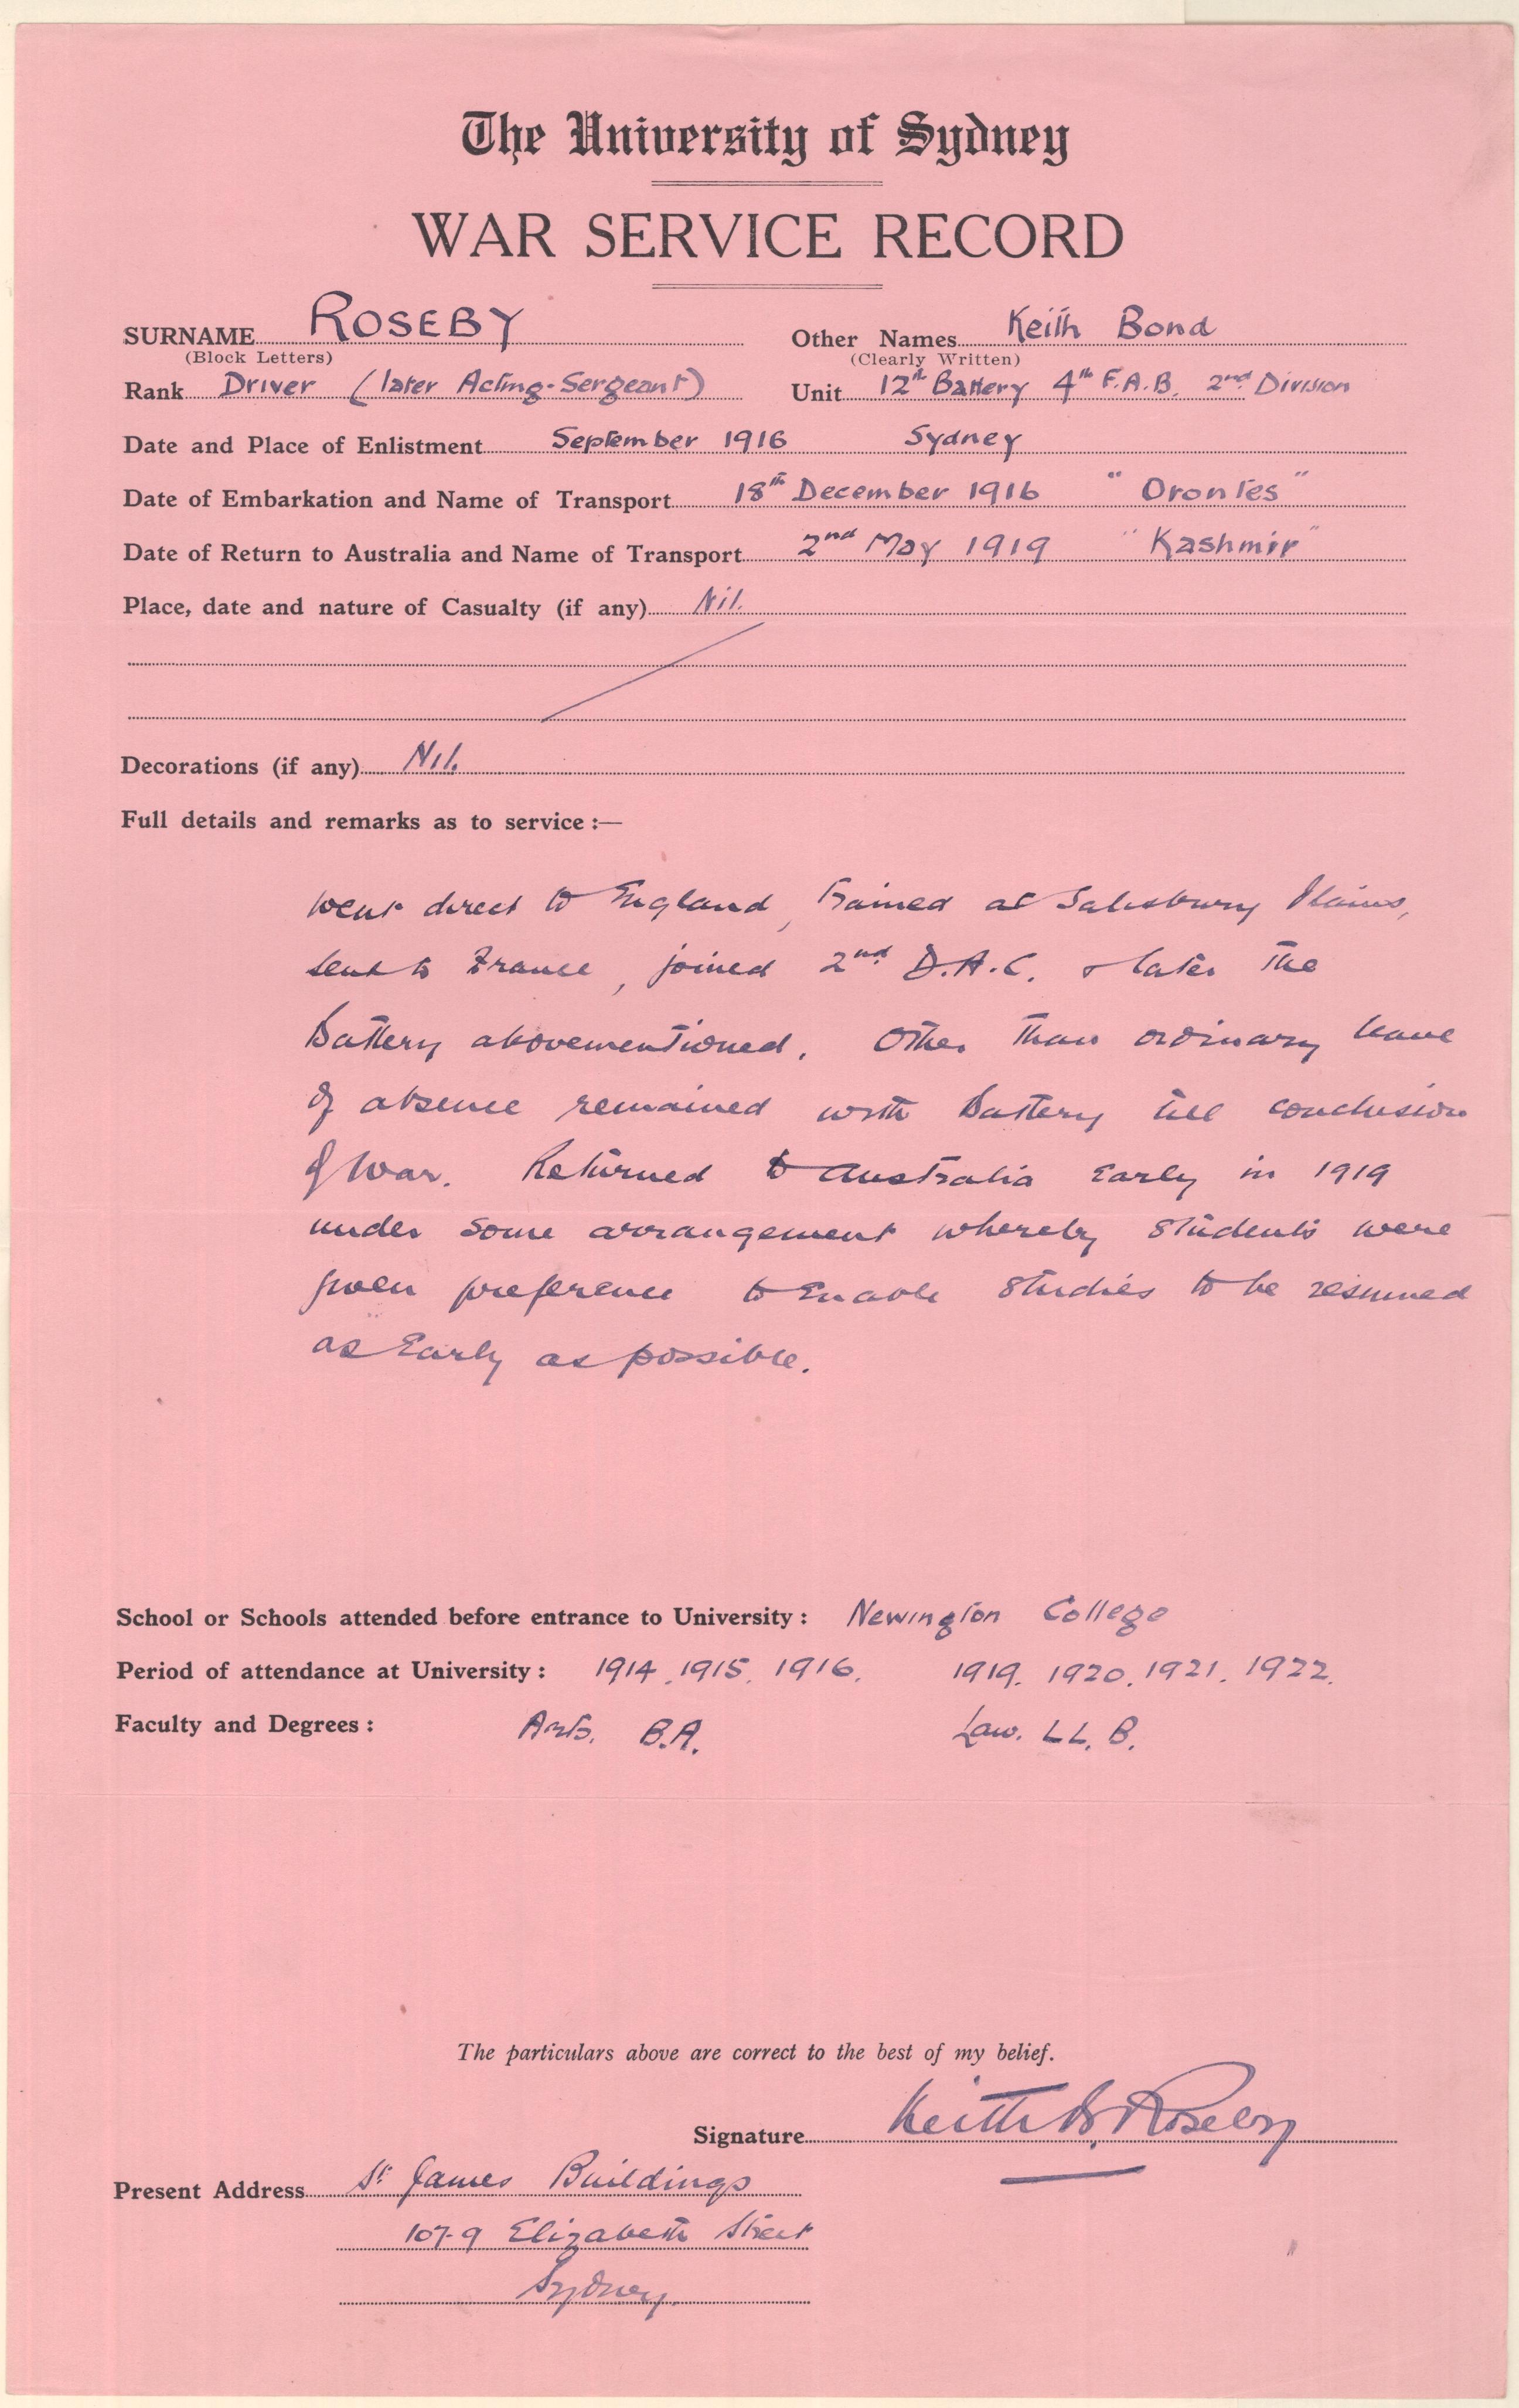 The University of Sydney
WAR SERVICE RECORD
SURNAME ROSEBY Other Names Keith Bond
(Block Letters) (Clearly Written)
Rank Driver (later Acting-Sergeant) Unit 12th Battery 4th F.A.B. 2nd Division
Date and Place of Enlistment September 1916 Sydney
Date of Embarkation and Name of Transport 18th December 1916 "Orontes"
Date of Return to Australia and Name of Transport 2nd May 1919 "Kashmir"
Place, date and nature of Casualty (if any) Nil.
Decorations (if any) Nil.
Full details and remarks as to service :—
Went direct to England, trained at Salisbury Plains,
sent to France, joined 2nd D.A.C. & later the
Battery abovementioned. Other than ordinary leave
of absence remained with Battery till conclusion
of War. Returned to Australia early in 1919
under some arrangement whereby students were
given preference to enable studies to be resumed
as early as possible.
School or Schools attended before entrance to University : Newington College
Period of attendance at University : 1914, 1915, 1916. 1919. 1920. 1921. 1922.
Faculty and Degrees : Arts. B.A. Law. LL.B.
The particulars above are correct to the best of my belief.
Signature Keith B. Roseby
Present Address St James Buildings
107-9 Elizabeth Street
Sydney.